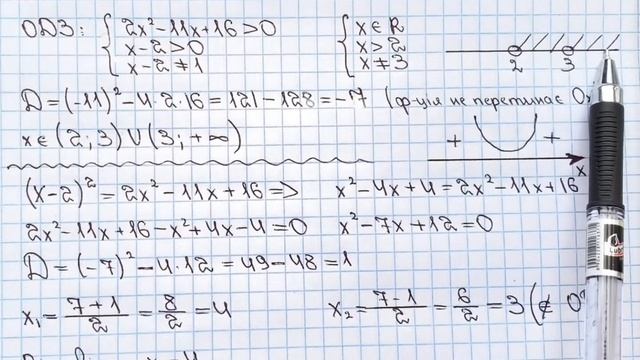 ОДЗ: { 2x² - 11x + 16 > 0 { x ∈ R
x - 2 > 0 x > 2
x - 2 ≠ 1 x ≠ 3 2 3
D = (-11)² - 4·2·16 = 121 - 128 = -7 (ф-ція не перетинає O
x ∈ (2; 3) ∪ (3; +∞) + + x
(x - 2)² = 2x² - 11x + 16 => x² - 4x + 4 = 2x² - 11x + 16
2x² - 11x + 16 - x² + 4x - 4 = 0 x² - 7x + 12 = 0
D = (-7)² - 4·12 = 49 - 48 = 1
x₁ = (7 + 1)/2 = 8/2 = 4 x₂ = (7 - 1)/2 = 6/2 = 3 (∉ О